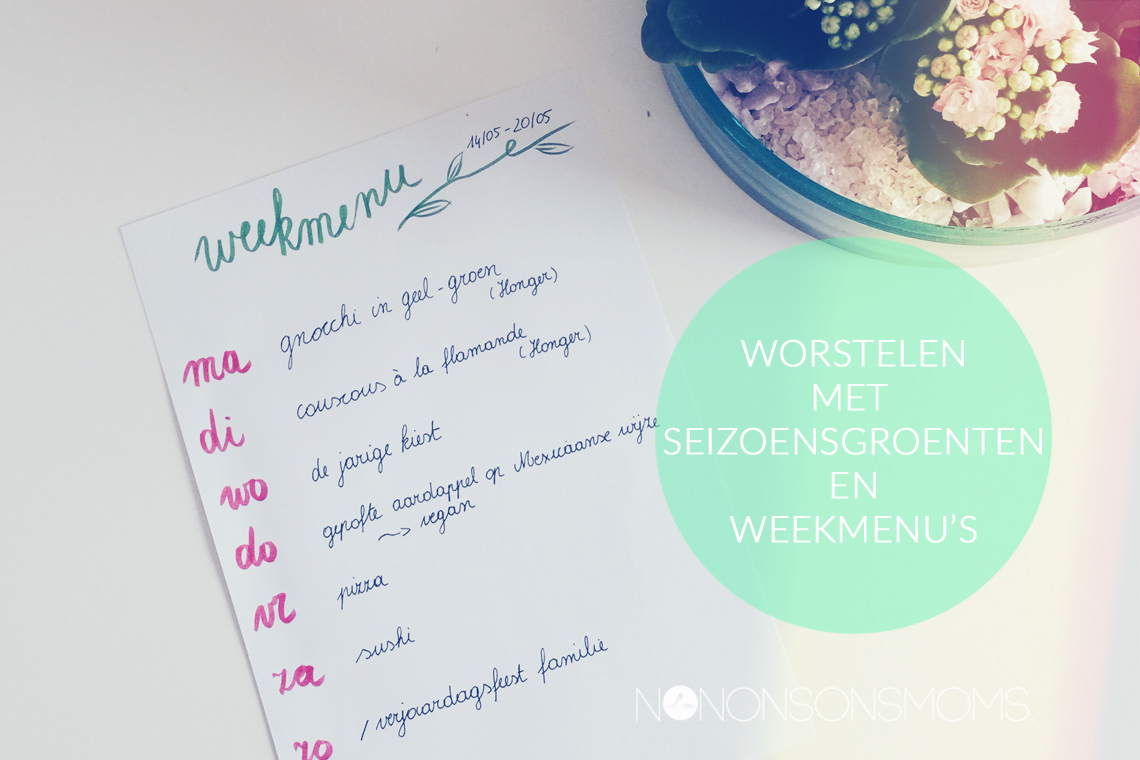 14/05 - 20/05
weekmenu
ma gnocchi in geel-groen
(Honger)
di couscous à la flamande
(Honger)
wo de jarige kiest
do gepofte aardappel op Mexicaanse wijze
~> vegan
vr pizza
za sushi
zo / verjaardagsfeest familie
WORSTELEN
MET
SEIZOENSGROENTEN
EN
WEEKMENU'S
NONONSONSMOMS.